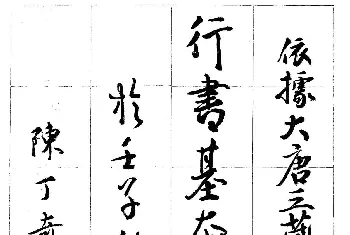 依據大唐三藏
行書基本
於壬子
陳丁奇